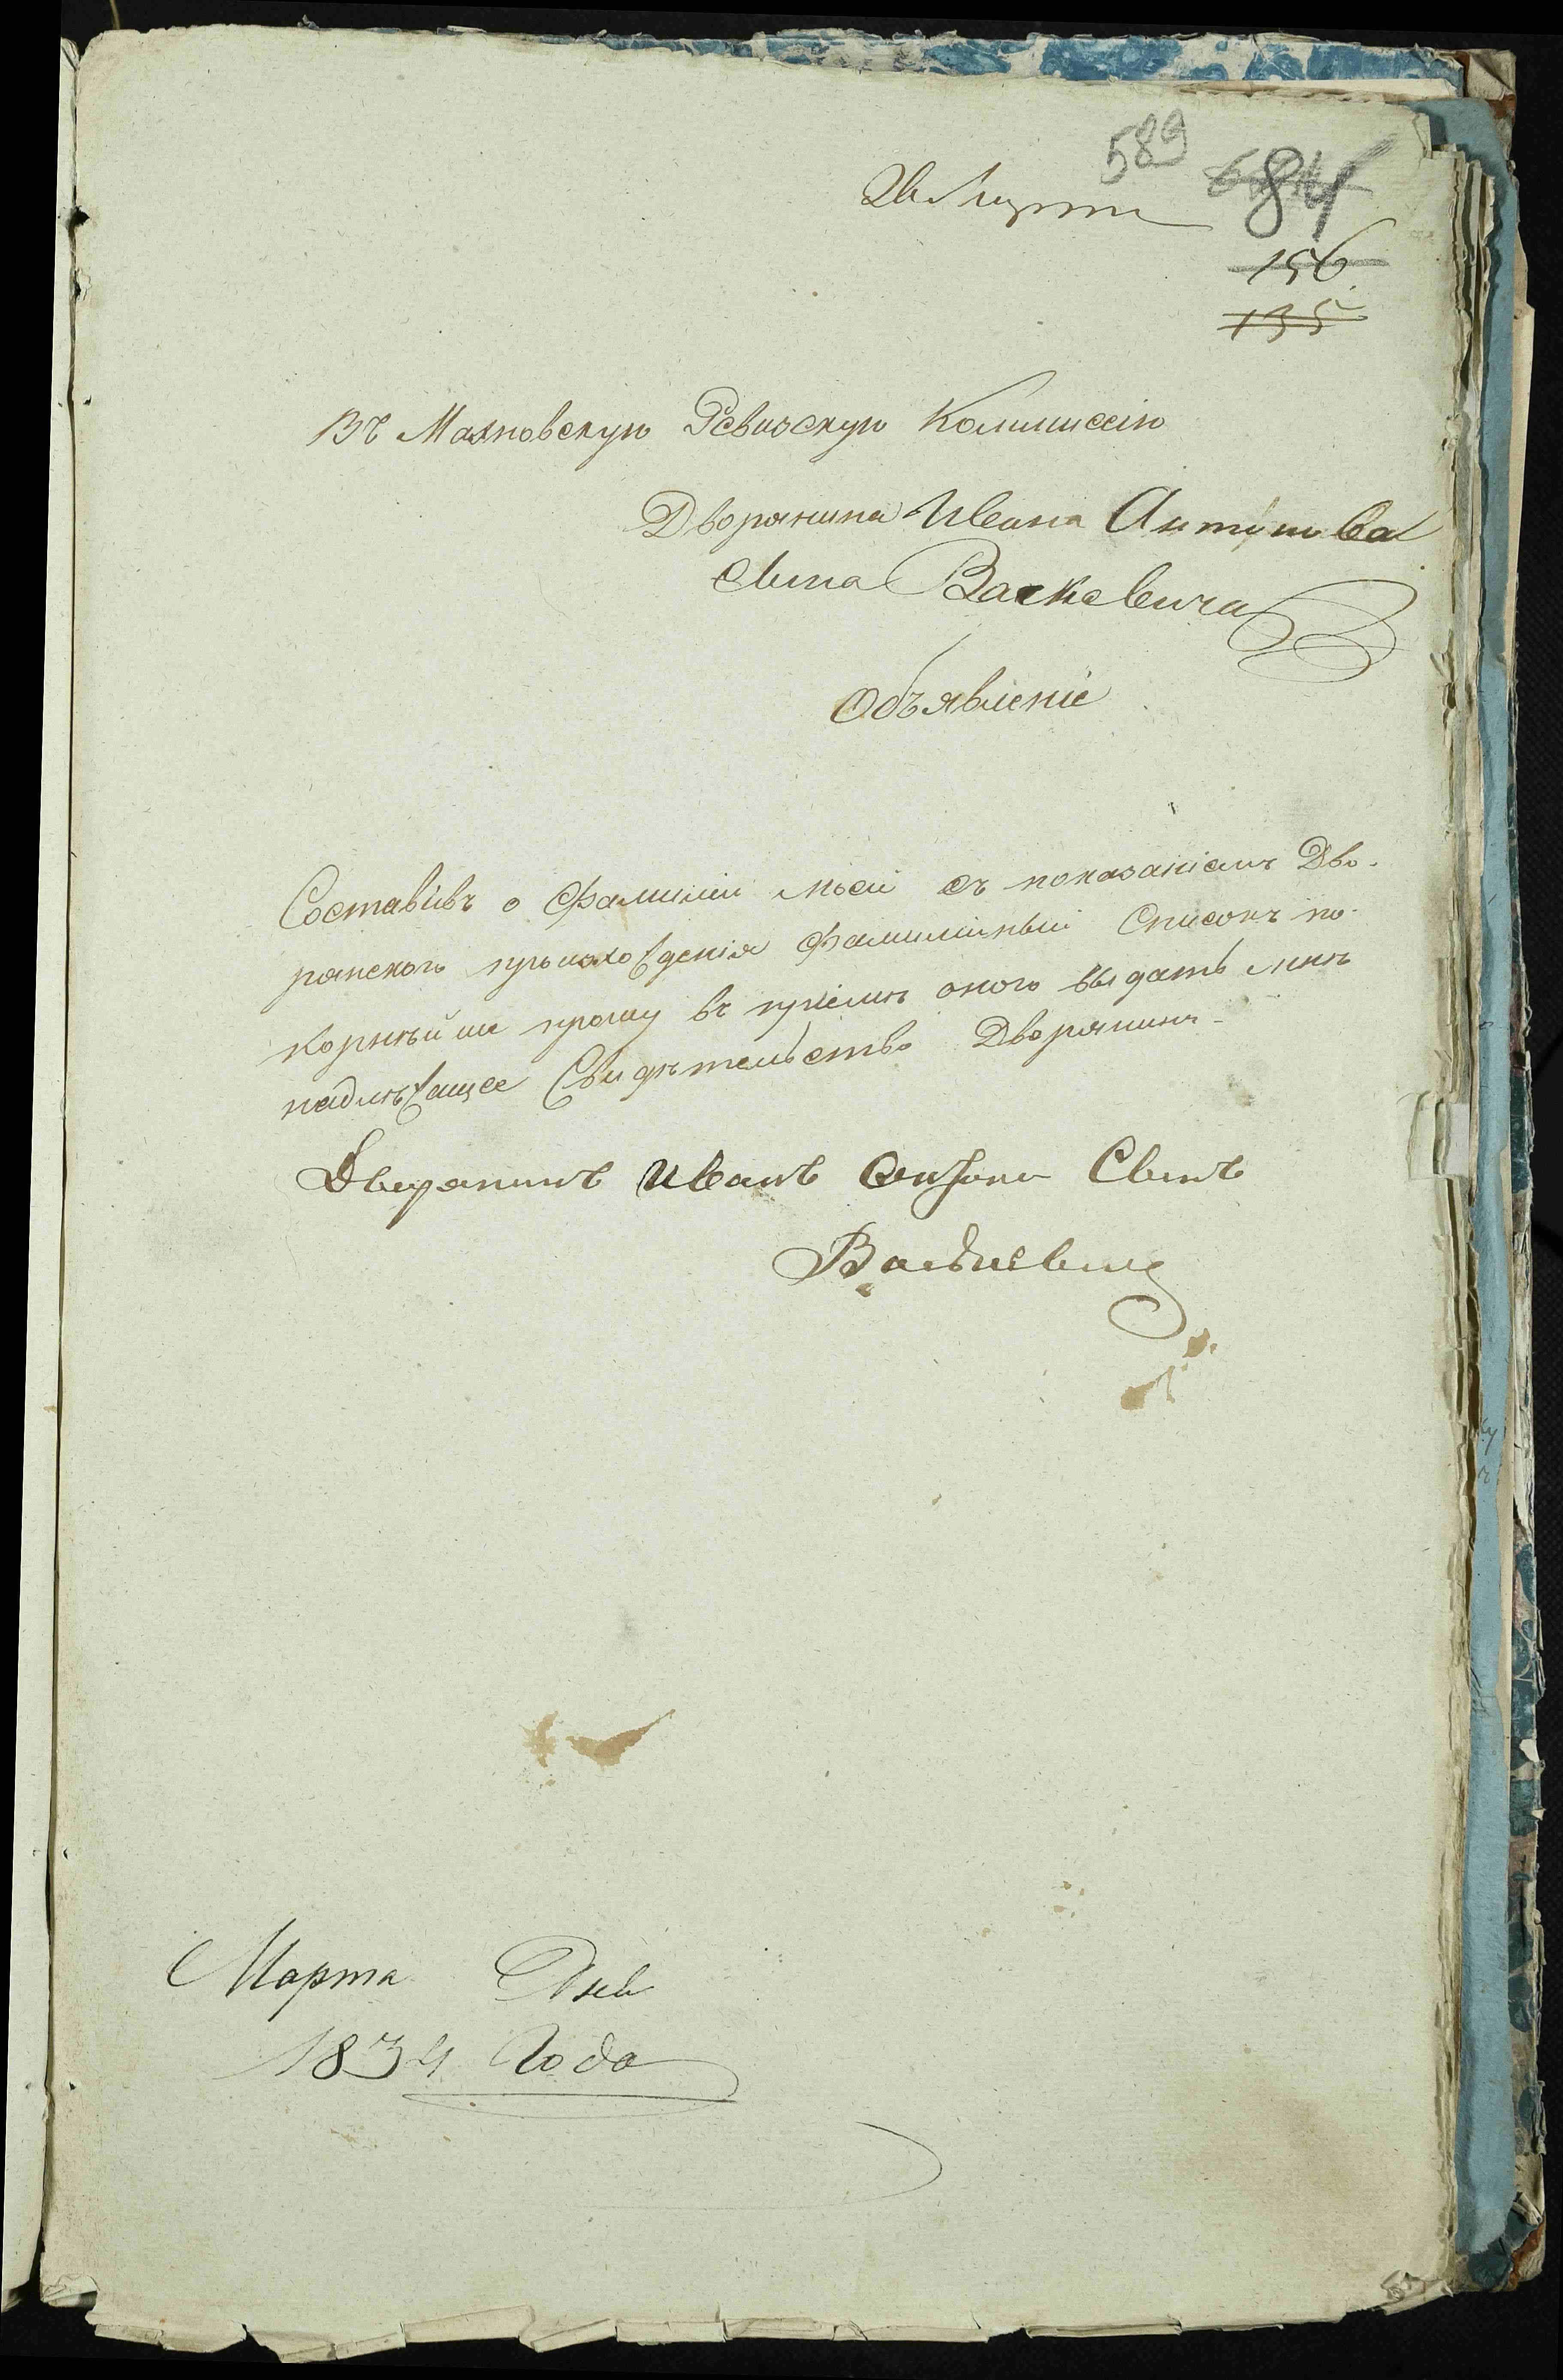 589
84
26 Марта
156
135
Въ Махновскую Ревизскую Коммиссію
Дворянина Ивана Антонова
сына Васкевича
Объявленіе
Составивъ о Фамиліи моей съ показаніемъ Дво-
рянскаго происхожденія Фамилийный Списокъ по-
корнѣйше прошу въ пріемѣ оного выдать мнѣ
надлѣжащее Свидѣтельство Дворянинъ-
Дворянинъ Иванъ Сынъ
Васкевичъ
Марта Дня
1834 Года